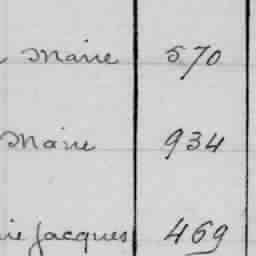 Marie 570
Marie 934
Jacques 469